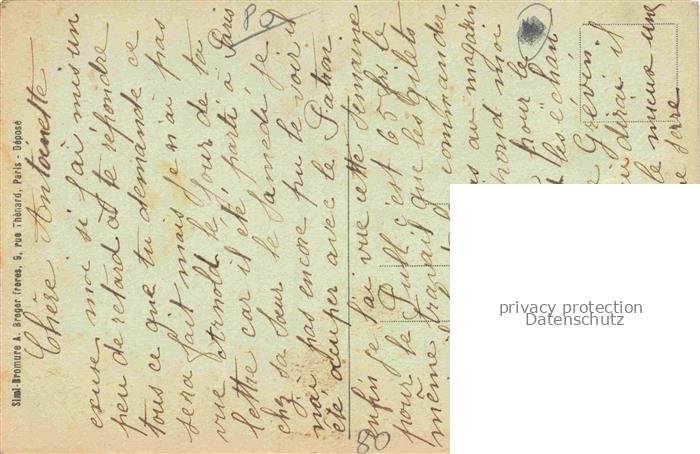 Simi-Bromure A. Breger frères, 9, rue Thénard, Paris - Déposé
Chère Antoinette
excuse moi si j'ai mis un
peu de retard à te répondre
tous ce que tu demande ce
sera fait mais je n'ai pas
vue Arnold le jour de ta
lettre car il été parti à Paris
chez sa sœur le samedi je
n'ai pas encore pu le voir il
été occuper avec le Patron.
enfin je l'ai vue cette semaine
pour le Pull c'est 65 frs le
même travail que les Gilets
commander
as au magasin
pond moi
pour le
les échan
Grévin.
dirai il
le mieux une
serre
89
80
privacy protection
Datenschutz